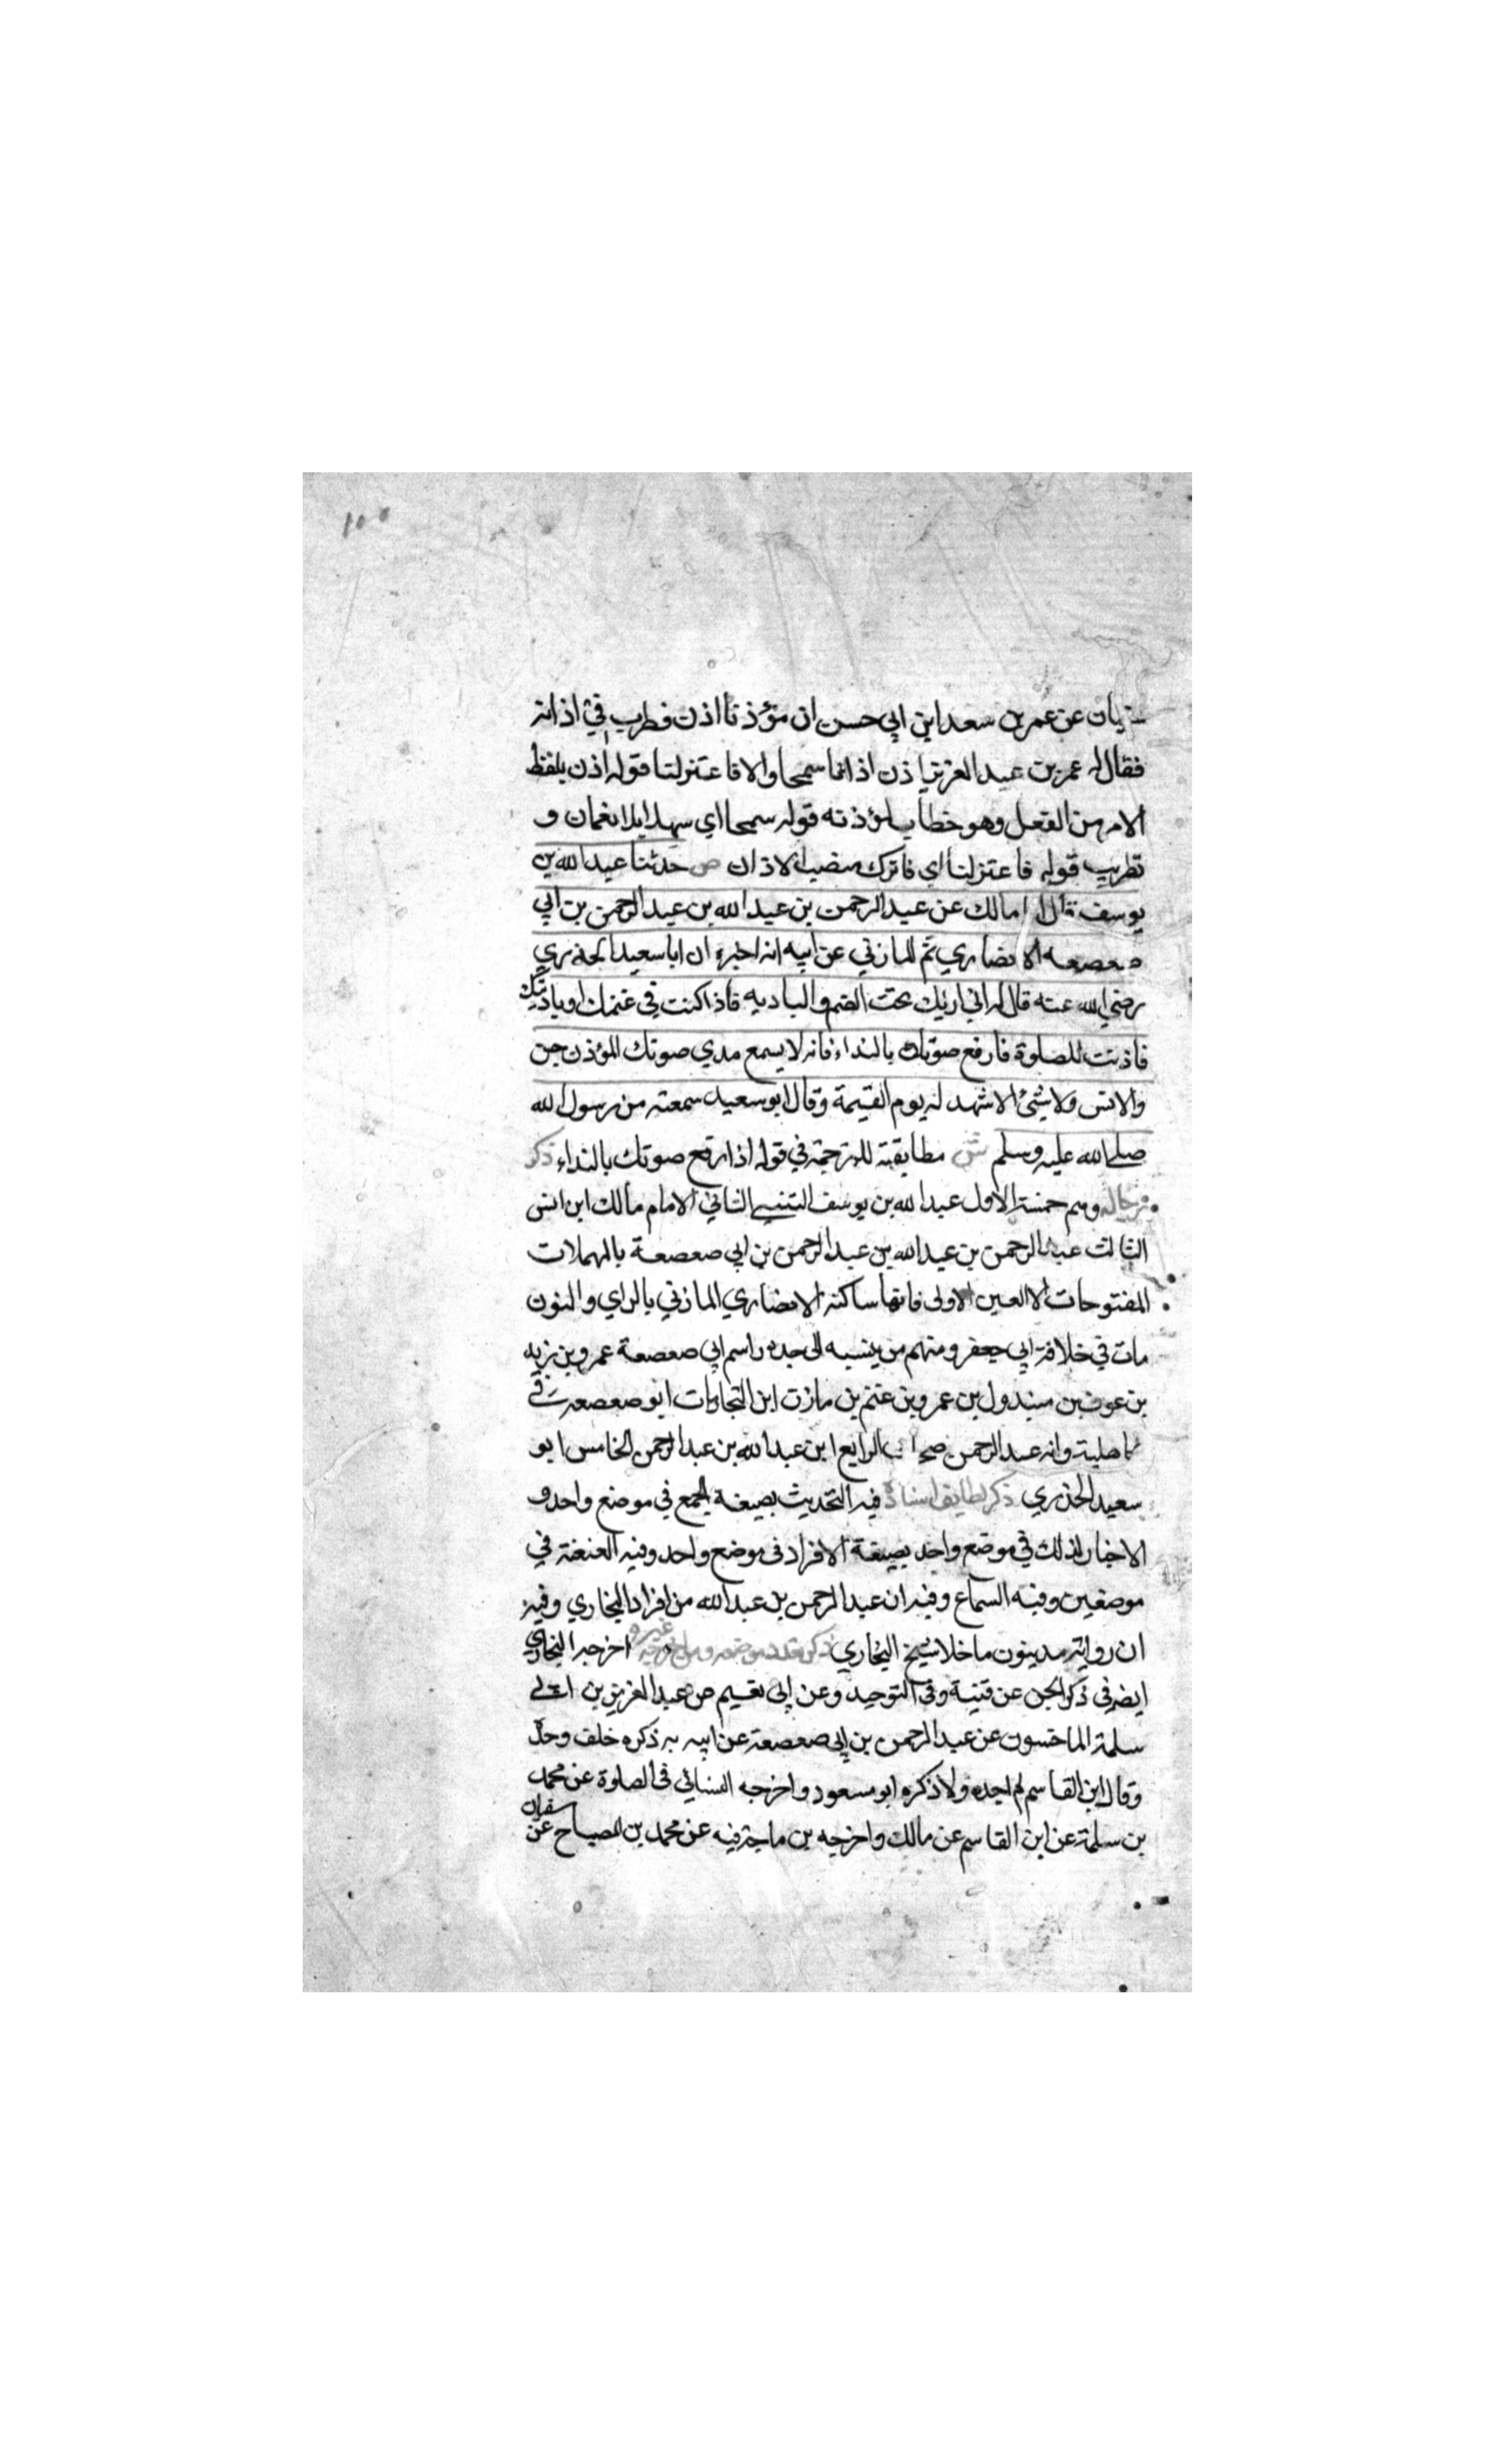 سفيان عن عمر بن سعد ابن ابي حسن ان مؤذنا اذن فطرب في اذانه
فقال له عمر بن عبد العزيز اذن اذانا سمحا والا فاعتزلنا قوله اذن بلفظ
الامر من الفعل وهو خطاب لمؤذنه قوله سمحا اي سهلا بلا نغمات و
تطريب قوله فاعتزلنا اي فاترك منصب الاذان ص حدثنا عبد الله بن
يوسف قال انا مالك عن عبد الرحمن بن عبد الله بن عبد الرحمن بن ابي
صعصعه الانصاري ثم المازني عن ابيه انه اخبره ان ابا سعيد الخدري
رضي الله عنه قال له اني اريك تحب الغنم والباديه فاذا كنت في غنمك او باديتك
فاذنت للصلوة فارفع صوتك بالنداء فانه لا يسمع مدي صوتك المؤذن جن
والانس ولا شئ الا شهد له يوم القيمة وقال ابو سعيد سمعته من رسول الله
صلى الله عليه وسلم ش مطابقته للترجمة في قوله اذا رفع صوتك بالنداء ذكر
رجاله وهم خمسة الاول عبد الله بن يوسف التنيسي الثاني الامام مالك ابن انس
الثالث عبد الرحمن بن عبد الله بن عبد الرحمن بن ابي صعصعة بالمهملات
المفتوحات الا العين الاولى فانها ساكنة الانصاري المازني بالزاي والنون
مات في خلافة ابي جعفر ومنهم من ينسبه الى جده واسم ابي صعصعة عمرو بن زيد
بن عوف بن مبذول بن عمرو بن غنم بن مازن ابن النجار مات ابو صعصعه في
الجاهلية وابنه عبد الرحمن صحابي الرابع ابن عبد الله بن عبد الرحمن الخامس ابو
سعيد الخدري ذكر لطايف اسناده فيه التحديث بصيغة الجمع في موضع واحد و
الاخبار كذلك في موضع واحد بصيغة الافراد في موضع واحد وفيه العنعنة في
موضعين وفيه السماع وفيه ان عبد الرحمن بن عبد الله من افراد البخاري وفيه
ان رواته مدينون ما خلا شيخ البخاري ذكر تعدد موضعه ومن اخرجه غيره اخرجه البخاري
ايضه في ذكر الجن عن قتيبة وفي التوحيد وعن ابي نعيم عن عبد العزيز بن ابي
سلمة الماجشون عن عبد الرحمن بن ابي صعصعة عن ابيه به ذكره خلف وحده
وقال ابن القاسم لم اجده ولا ذكره ابو مسعود واخرجه النسائي في الصلوة عن محمد
بن سلمة عن ابن القاسم عن مالك واخرجه بن ماجة فيه عن محمد بن الصباح عن سفيان